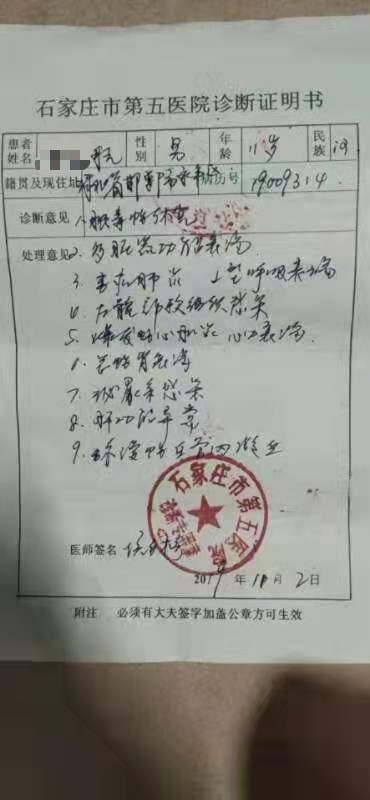 石家庄市第五医院诊断证明书
患者姓名 性别 男 年龄 11岁 民族 汉
籍贯及现住址 河北省邯郸市 病历号 19009314
诊断意见 1. 脓毒性休克
处理意见 2. 多脏器功能衰竭
3. 重症肺炎 I型呼吸衰竭
4. 软组织感染
5. 爆发性心肌炎 心力衰竭
6. 急性肾衰竭
7. 泌尿系感染
8. 肝功能异常
9. 弥漫性血管内凝血
石家庄市第五医院
医师签名
2019年11月2日
附注 必须有大夫签字加盖公章方可生效